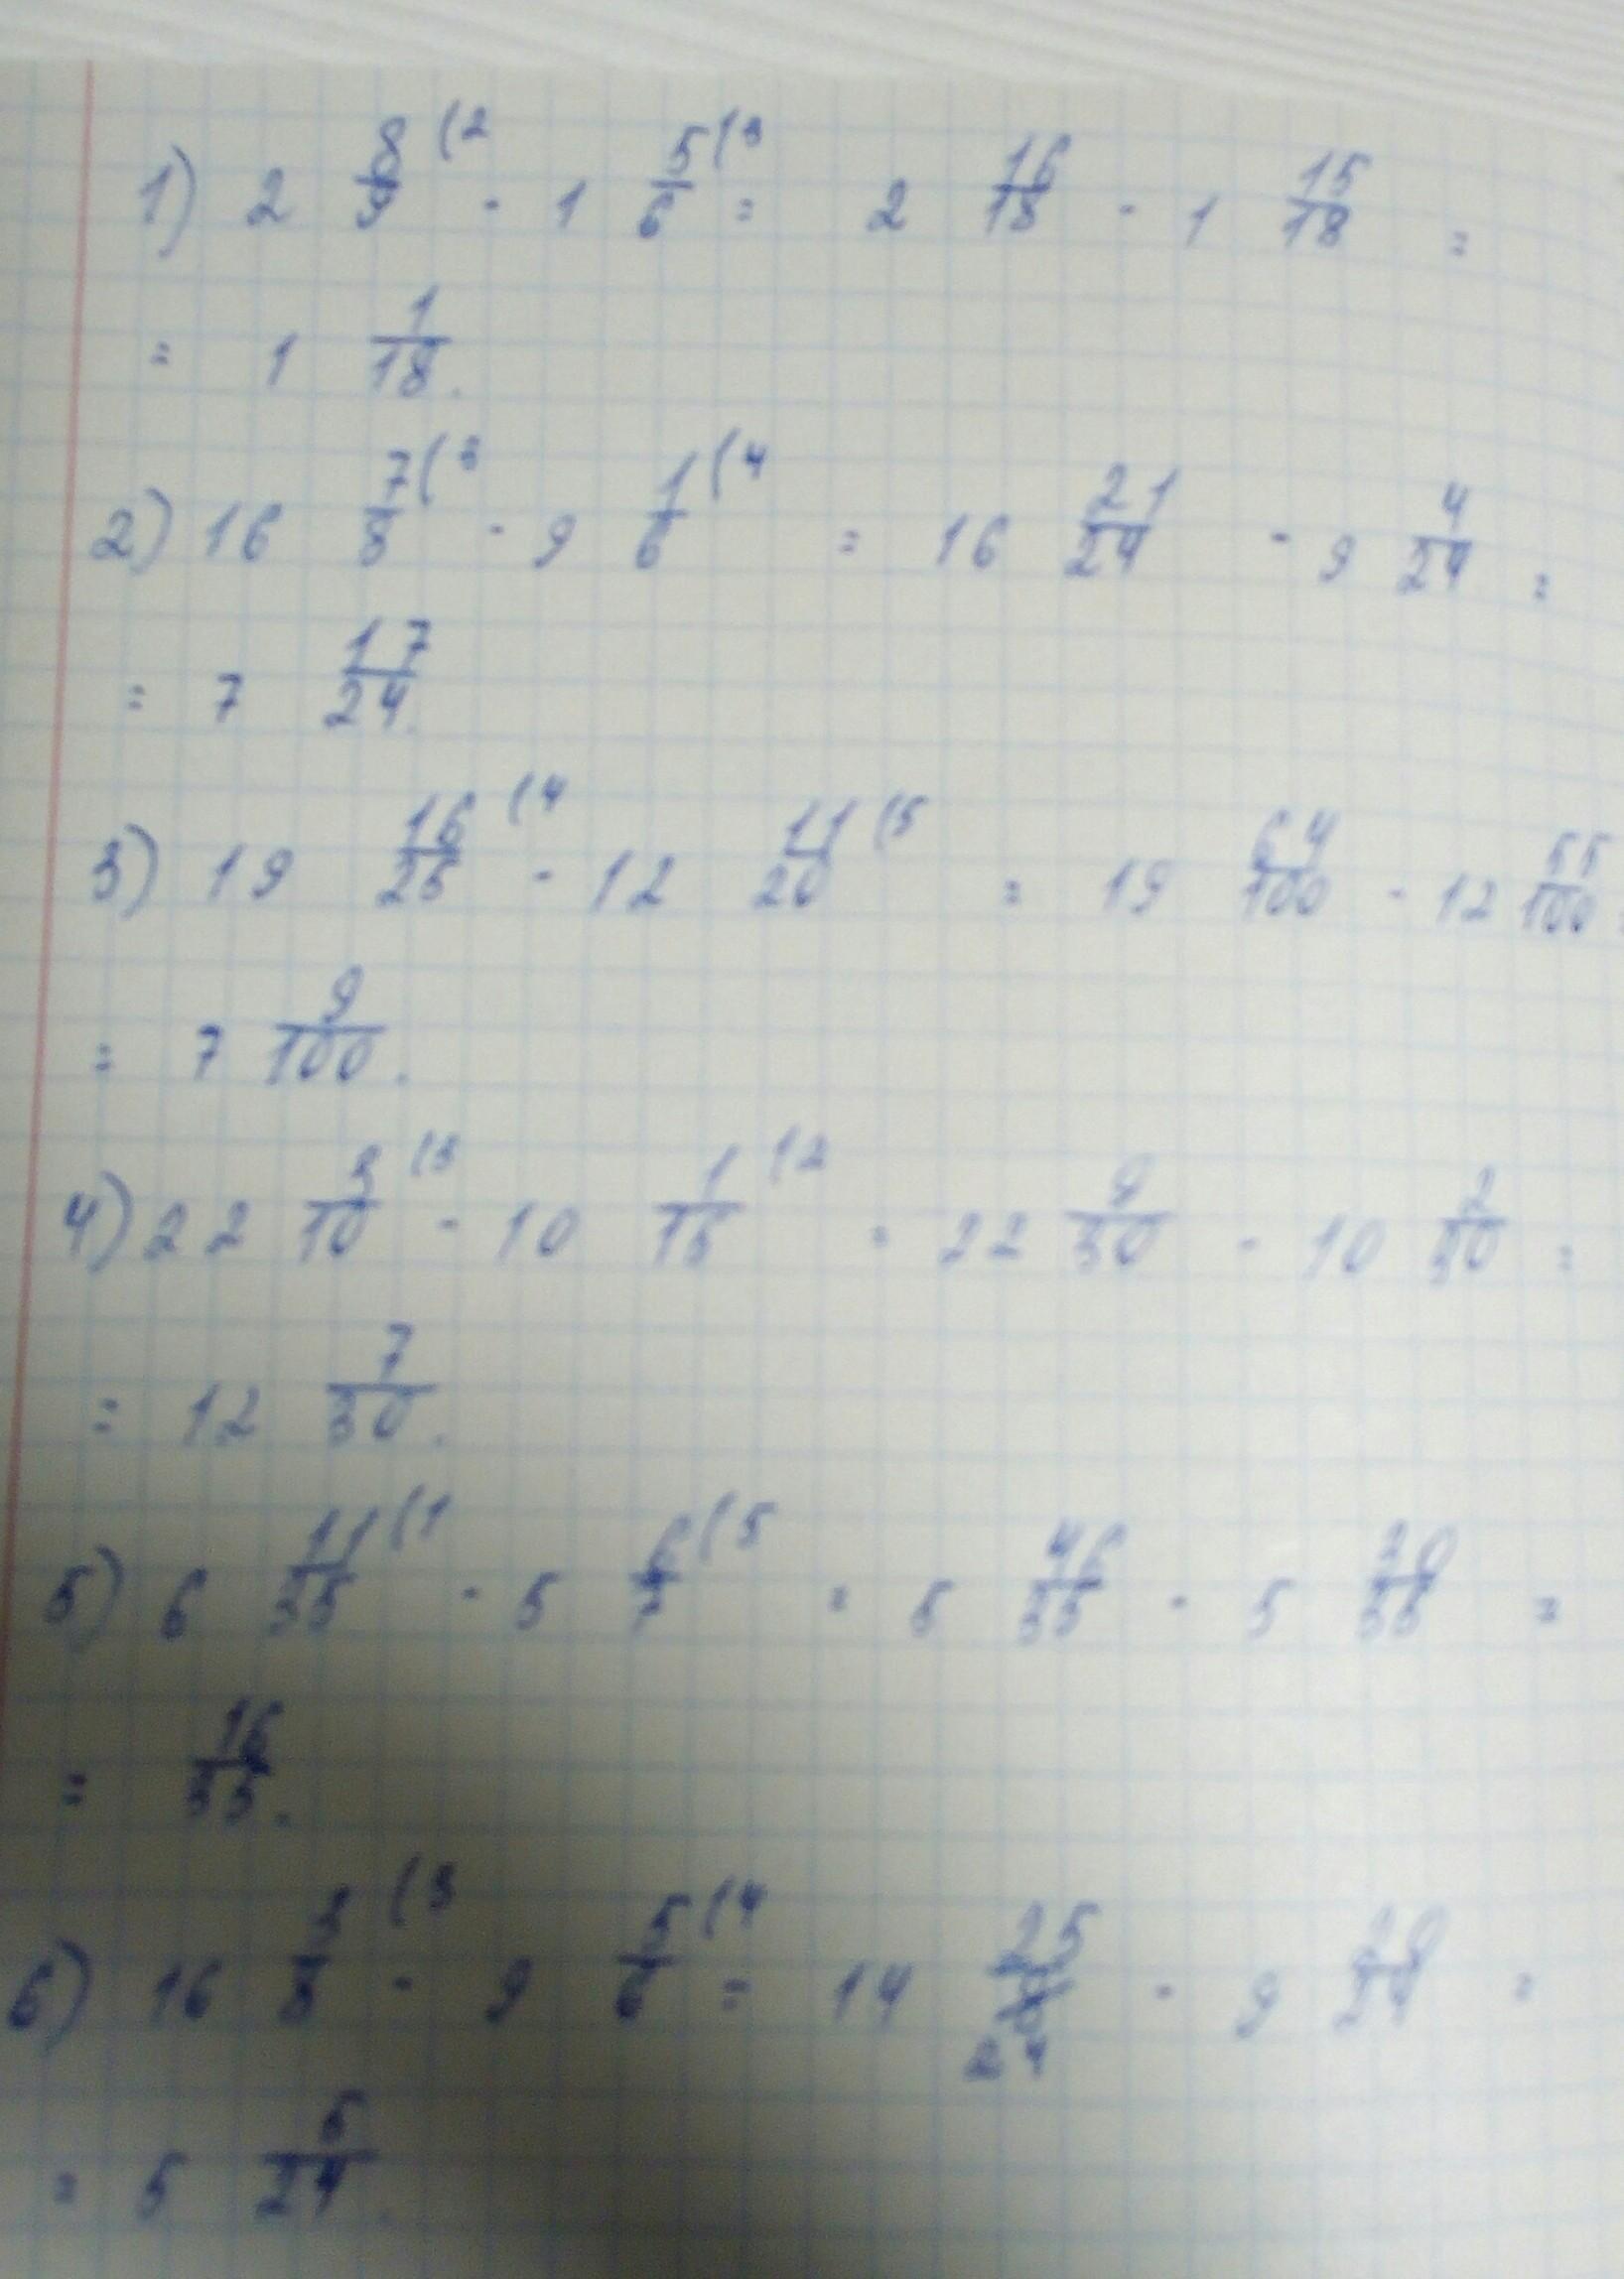 1) 2 8/9 (2 - 1 5/6 (3 = 2 16/18 - 1 15/18 =
= 1 1/18.
2) 16 7/8 (3 - 9 1/6 (4 = 16 21/24 - 9 4/24 =
= 7 17/24.
3) 19 16/25 (4 - 12 11/20 (5 = 19 64/100 - 12 55/100 =
= 7 9/100.
4) 22 3/10 (3 - 10 1/15 (2 = 22 9/30 - 10 2/30 =
= 12 7/30.
5) 6 11/35 (1 - 5 6/7 (5 = 5 46/35 - 5 30/35 =
= 16/35.
6) 16 3/8 (3 - 9 5/6 (4 = 14 25/24 - 9 20/24 =
= 5 5/24.